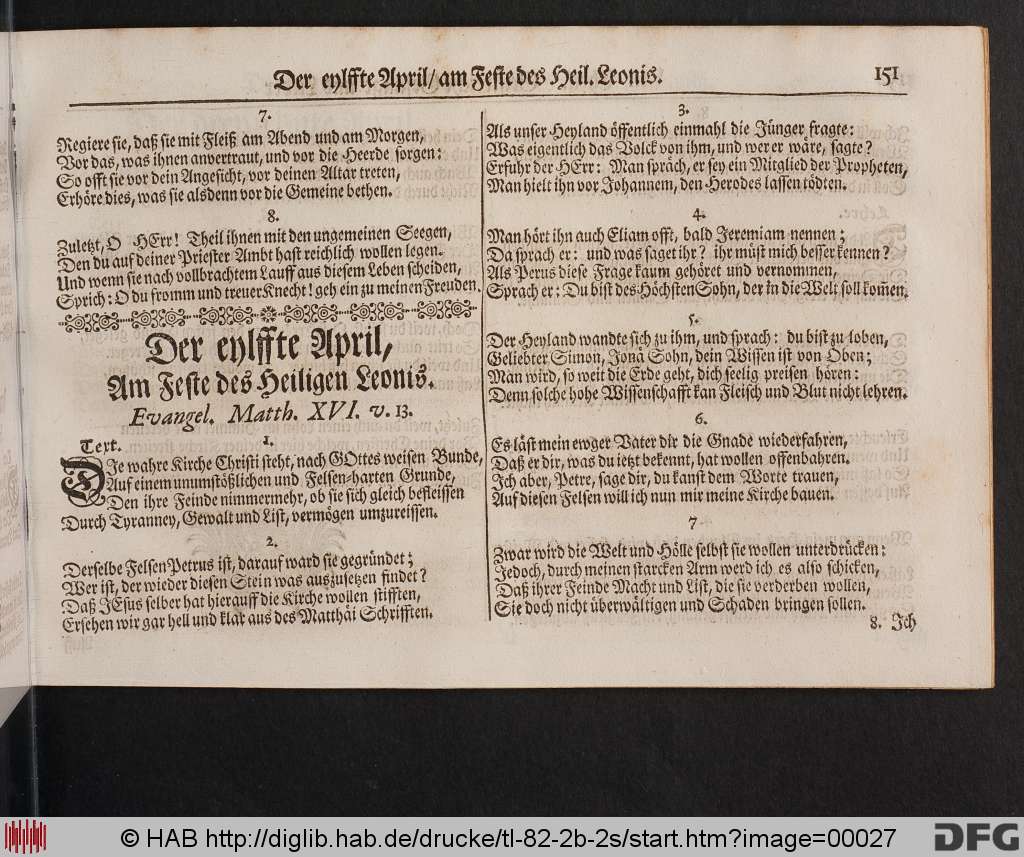 Der eylffte April/ am Feste des Heil. Leonis.
151
7.
Regiere sie, daß sie mit Fleiß am Abend und am Morgen,
Vor das, was ihnen anvertraut, und vor die Heerde sorgen:
So offt sie vor dein Angesicht, vor deinen Altar treten,
Erhöre dies, was sie alsdenn vor die Gemeine bethen.
8.
Zuletzt, O HErr! Theil ihnen mit den ungemeinen Seegen,
Den du auf deiner Priester Ambt hast reichlich wollen legen.
Und wenn sie nach vollbrachtem Lauff aus diesem Leben scheiden,
Sprich: O du fromm und treuer Knecht! geh ein zu meinen Freuden.
Der eylffte April,
Am Feste des Heiligen Leonis.
Evangel. Matth. XVI. v. 13.
Text.
1.
DIe wahre Kirche Christi steht, nach GOttes weisen Bunde,
Auf einem unumstößlichen und Felsen-harten Grunde,
Den ihre Feinde nimmermehr, ob sie sich gleich befleissen
Durch Tyranney, Gewalt und List, vermögen umzureissen.
2.
Derselbe Felsen Petrus ist, darauf ward sie gegründet;
Wer ist, der wieder diesen Stein was auszusetzen findet?
Daß JEsus selber hat hierauff die Kirche wollen stifften,
Ersehen wir gar hell und klar aus des Matthäi Schrifften.
3.
Als unser Heyland öffentlich einmahl die Jünger fragte:
Was eigentlich das Volck von ihm, und wer er wäre, sagte?
Erfuhr der HErr: Man spräch, er sey ein Mitglied der Propheten,
Man hielt ihn vor Johannem, den Herodes lassen tödten.
4.
Man hört ihn auch Eliam offt, bald Jeremiam nennen;
Da sprach er: und was saget ihr? ihr müst mich besser kennen?
Als Perus diese Frage kaum gehöret und vernommen,
Sprach er: Du bist des Höchsten Sohn, der in die Welt soll kom̃en.
5.
Der Heyland wandte sich zu ihm, und sprach: du bist zu loben,
Geliebter Simon, Jonä Sohn, dein Wissen ist von Oben;
Man wird, so weit die Erde geht, dich seelig preisen hören:
Denn solche hohe Wissenschafft kan Fleisch und Blut nicht lehren.
6.
Es läst mein ewger Vater dir die Gnade wiederfahren,
Daß er dir, was du ietzt bekennt, hat wollen offenbahren.
Ich aber, Petre, sage dir, du kanst dem Worte trauen,
Auf diesen Felsen will ich nun mir meine Kirche bauen.
7
Zwar wird die Welt und Hölle selbst sie wollen unterdrücken:
Jedoch, durch meinen starcken Arm werd ich es also schicken,
Daß ihrer Feinde Macht und List, die sie verderben wollen,
Sie doch nicht überwältigen und Schaden bringen sollen.
8. Ich
© HAB http://diglib.hab.de/drucke/tl-82-2b-2s/start.htm?image=00027
DFG